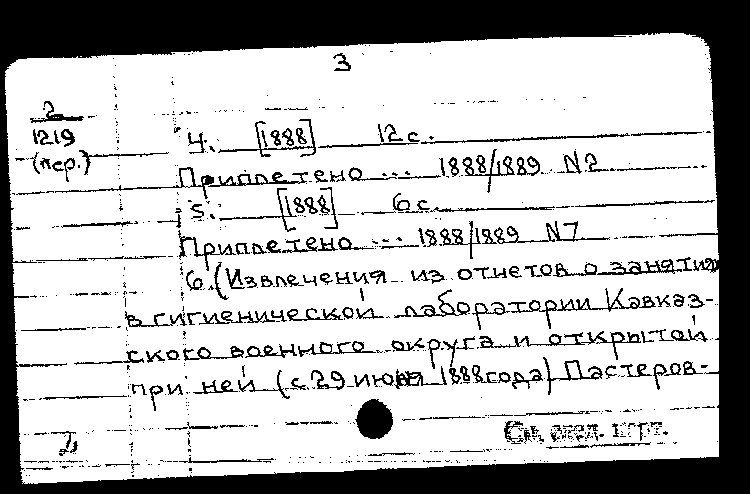 3
2
1219
(пер.)
4. [1888] 12 с.
Приплетено ... 1888/1889 N2
5. [1888] 6 с.
Приплетено ... 1888/1889 N7
6. (Извлечения из отчетов о занятиях
в гигиенической лаборатории Кавказ-
ского военного округа и открытой
при ней (с 29 июня 1888 года) Пастеров-
См. след. карт.